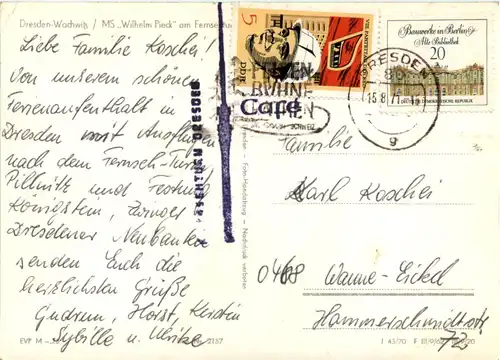 Dresden-Wachwitz / MS "Wilhelm Pieck" am Fernsehturm
Liebe Familie Koschei!
Von unserem schönen
Ferienaufenthalt in
Dresden mit Ausflügen
nach dem Fernseh-Turm,
Pillnitz und Festung
Königstein, Zwinger
Dresdener Neubauten
senden Euch die
herzlichsten Grüße
Gudrun, Horst, Kerstin
Sybille u. Ulrike
EVP M
2157
5
DDR
Bauwerke in Berlin
Alte Bibliothek
20
DEUTSCHE DEMOKRATISCHE REPUBLIK
DRESDEN
15.8.71
g
FELSEN
BÜHNE
Café
Foto-Handabzug - Nachdruck verboten
Familie
Karl Koschei
0468 Wanne-Eickel
Hammerschmidtstr
72
J 43/70